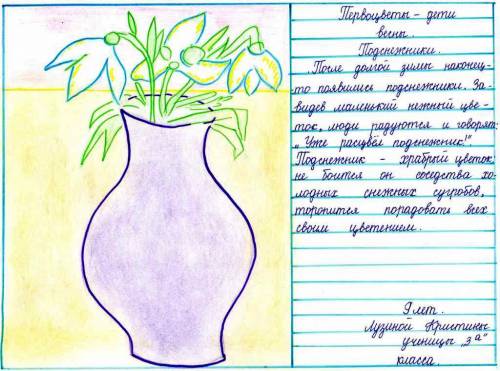 Первоцветы - дети
весны.
Подснежники.
После долгой зимы наконец-
то появились подснежники. За-
видев маленький нежный цве-
ток, люди радуются и говорят:
„Уже расцвёл подснежник!"
Подснежник - храбрый цветок:
не боится он соседства хо-
лодных снежных сугробов,
торопится порадовать всех
своим цветением.
9 лет.
Лузиной Кристины
ученицы „3а"
класса.